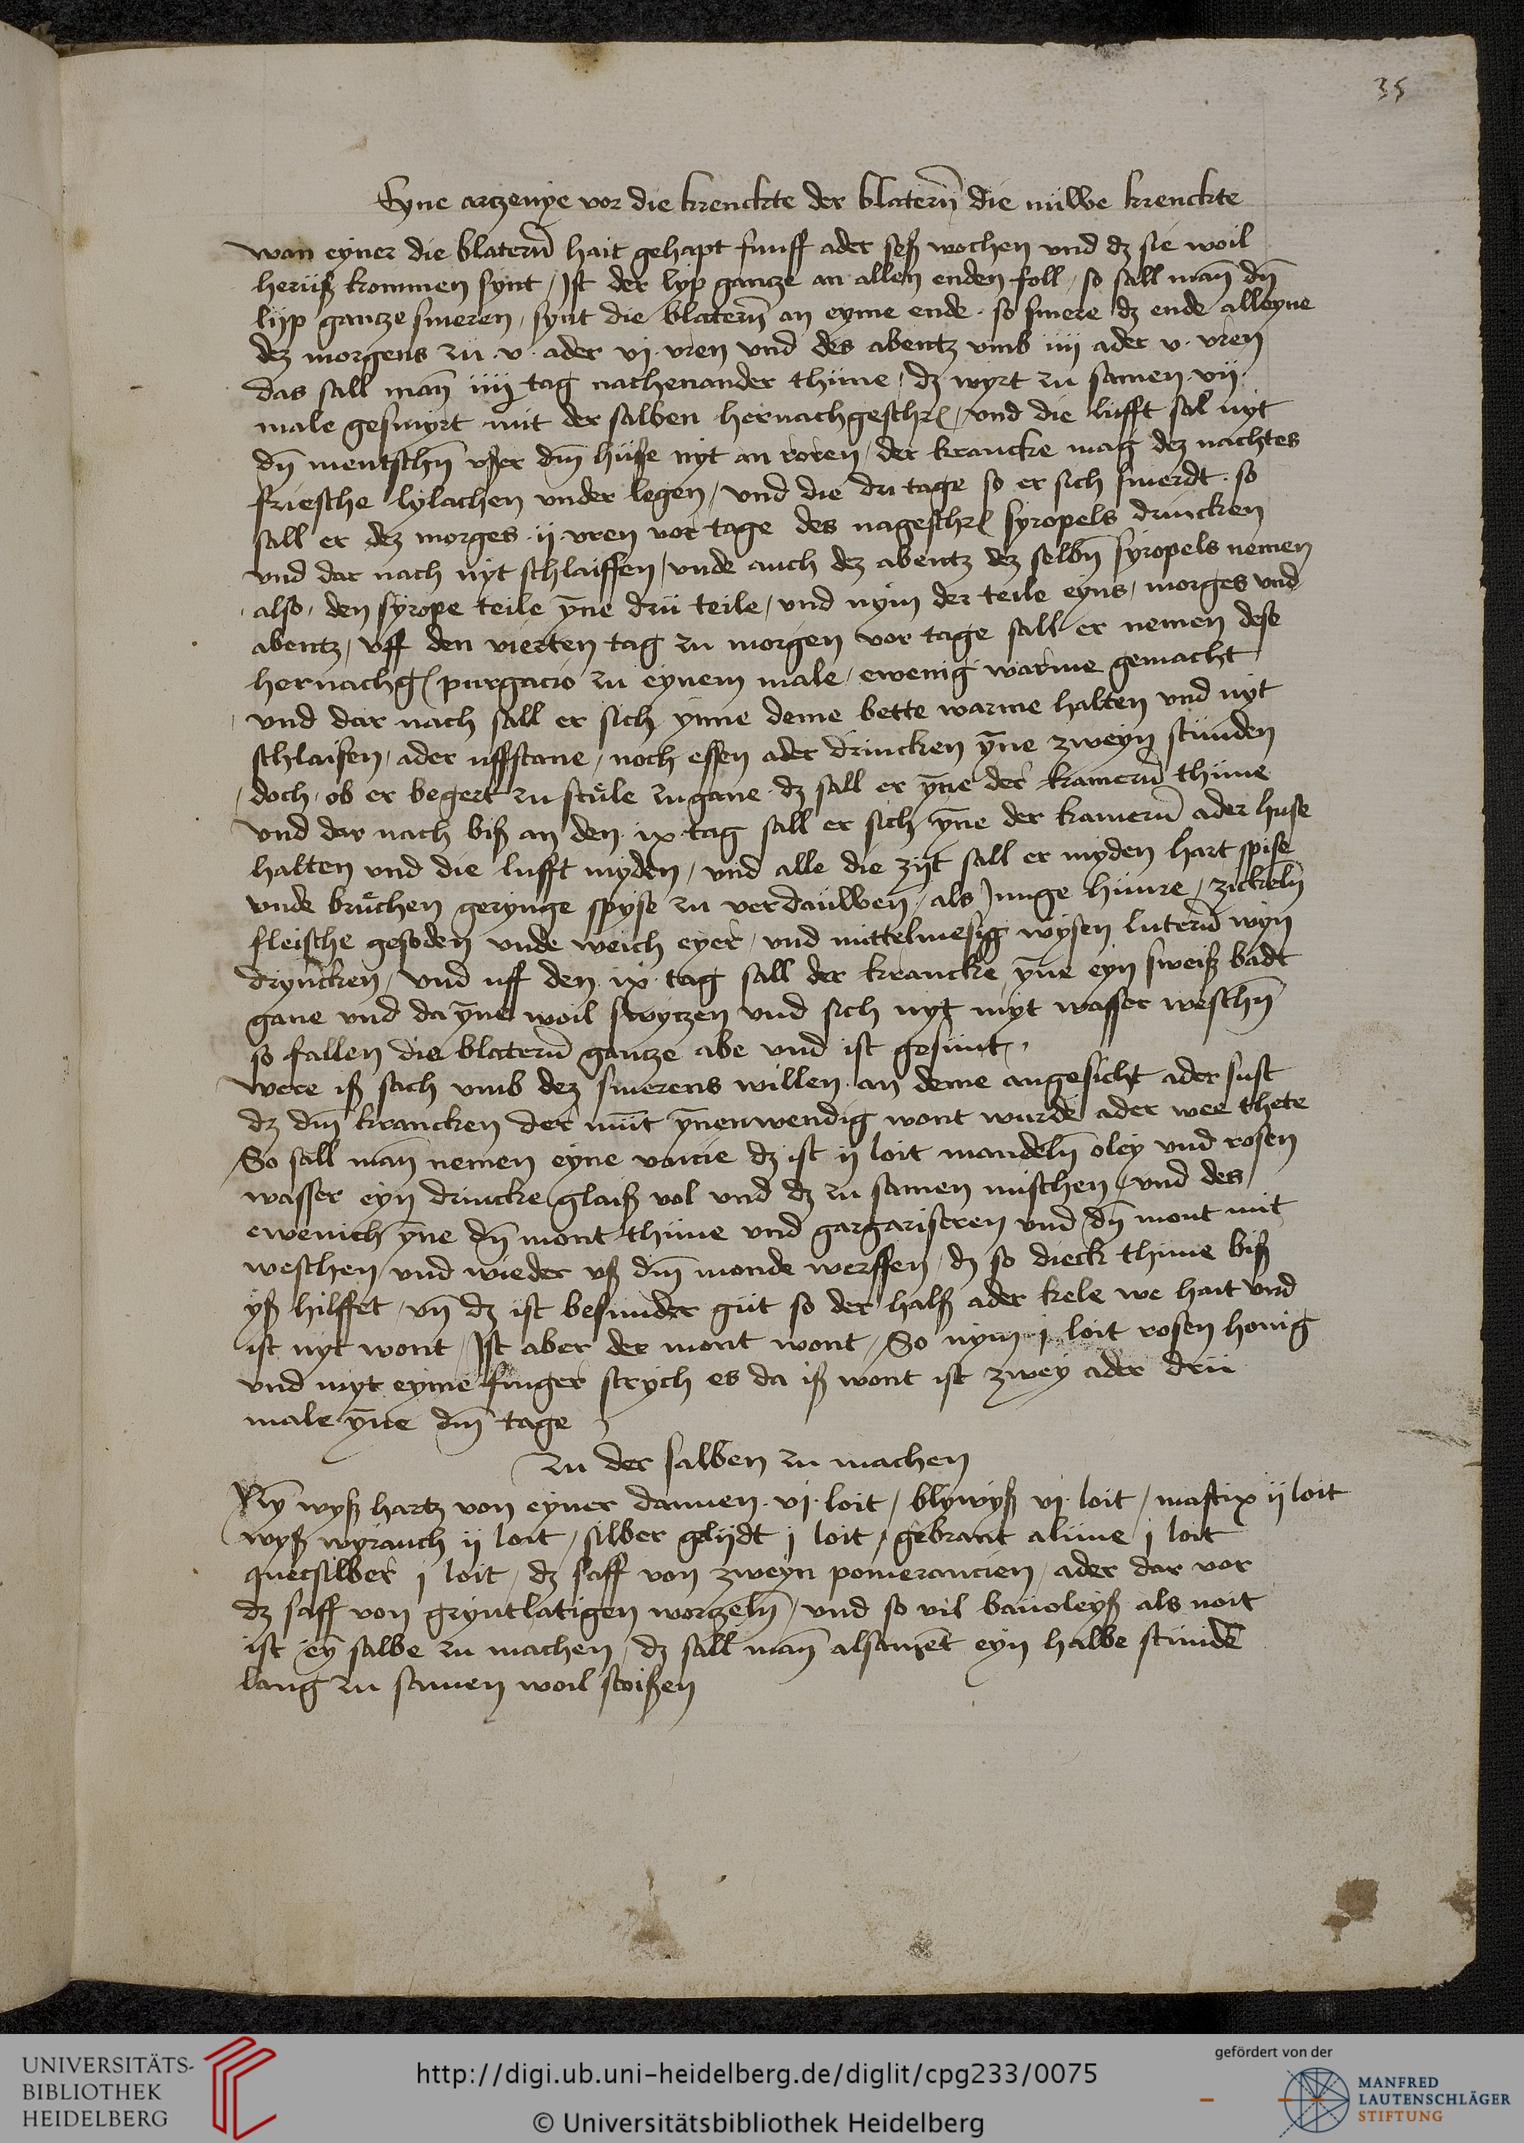 35
Eyne artzenye vor die krenckte der blatern̄ die nüwe krenckte
wan eyner die blatern̄ hait gehapt funff ader seß wochen vnd dz sie woil
herüß kommen synt / Ist der lyp gantze an allen enden foll / so sall man̄ dn̄
lyp gantze smeren / synt die blatern̄ an eyme ende · so smere dz ende alleyne
dez morgens zu · v · ader vj · vren vnd des abentz vmb iiij ader v · vren
das sall man̄ iiij tag nachenander thüne / dz wyrt zu samen vij
male gesmyrt mit der salben hernachgeschr / vnd die lufft sal nyt
dn̄ mentschn̄ vsser dm̄ hüse nyt an roren / der krancke mag dez nachtes
friesche lylachen vnder legen / vnd die dri tage so er sich smerdt · so
sall er dez morges · ij · vren vor tage des nageschr syropels drincken
vnd dar nach nyt schlaiffen / vnde auch dz abentz dez selbn̄ syropels nemen
also / den syrope teile yn̄e drü teile / vnd nym der teile eyns / morges vnd
abentz / vff den vierten tag zu morgen vor tage sall er nemen dese
hernachg purgacio zu eynem male / ewenig warme gemacht
vnd dar nach sall er sich ynne deme bette warme halten vnd nyt
schlaifen / ader vffstane / noch essen ader drincken yn̄e zweyn stunden
/ doch / ob er begert zu stule zugane dz sall er yn̄e der kamern̄ thüne
vnd dar nach biß an den · ix tag sall er sich yn̄e der kamern̄ ader huse
halten vnd die lufft myden / vnd alle die zyt sall er myden hart spise
vnde bruchen gerynge spyse zu verdaüwen / als Junge hünre / zickeln̄
fleische gesoden vnde weich eyer / vnd mittelmesig wysen lutern̄ wyn
dryncken / vnd uff den · ix · tag sall der krancke yn̄e eyn sweiß badt
gane vnd da yn̄e woil switzen vnd sich nyt myt wasser weschn̄
so fallen die blatern̄ gantze abe vnd ist gesunt /
Were iß sach vmb dez smerens willen an deme angesicht ader sust
dz dm̄ krancken der mūt yn̄enwendig wont wurde ader wee thete
So sall man̄ nemen eyne vncie dz ist ij loit mandeln̄ oley vnd rosen
wasser eyn drincke glaiß vol vnd dz zu samen mischen / vnd des
ewenich yn̄e dn̄ mont thüne vnd gargariseren vnd dn̄ mont mit
weschen vnd wieder vß dm̄ monde werffen / dz so dieck thüne biß
yß hilffet / vn̄ dz ist besunder güt so der halß ader kele we hait vnd
ist nyt wont / Ist aber der mont wont / So nym j loit rosen honig
vnd myt eyme finger strych es da iß wont ist zwey ader drü
male yn̄e dm̄ tage
Zu der salben zu machen
Ny̅ wyß hartz von eyner dannen · vj · loit / blywyß vj · loit / mastix ij loit
wyß wyrauch ij loit / silber glijdt j loit / gebrant alüne j loit
quecsilber j loit / dz saff von zweyn pomerancien / ader dar vor
dz saff von gryntlatigen worzeln̄ / vnd so vil bauoleyß als noit
ist ey̅ salbe zu machen / dz sall man̄ alsamēt eyn halbe stunde
lang zu samen woil stoißen
UNIVERSITÄTS-
BIBLIOTHEK
HEIDELBERG
http://digi.ub.uni-heidelberg.de/diglit/cpg233/0075
© Universitätsbibliothek Heidelberg
gefördert von der
MANFRED
LAUTENSCHLÄGER
STIFTUNG